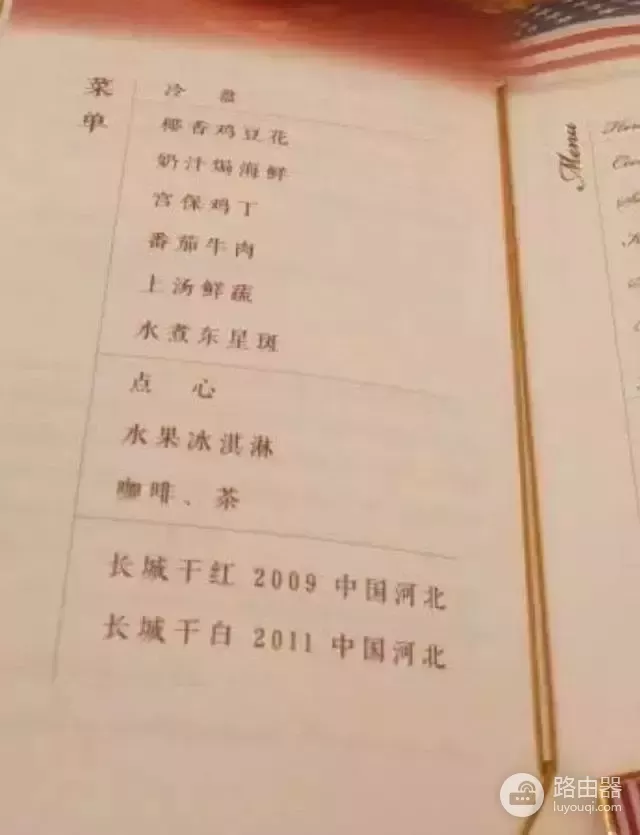 菜单
冷 盘
椰香鸡豆花
奶汁焗海鲜
宫保鸡丁
番茄牛肉
上汤鲜蔬
水煮东星斑
点 心
水果冰淇淋
咖啡、茶
长城干红 2009 中国河北
长城干白 2011 中国河北
Menu
路由器
luyouqi.com